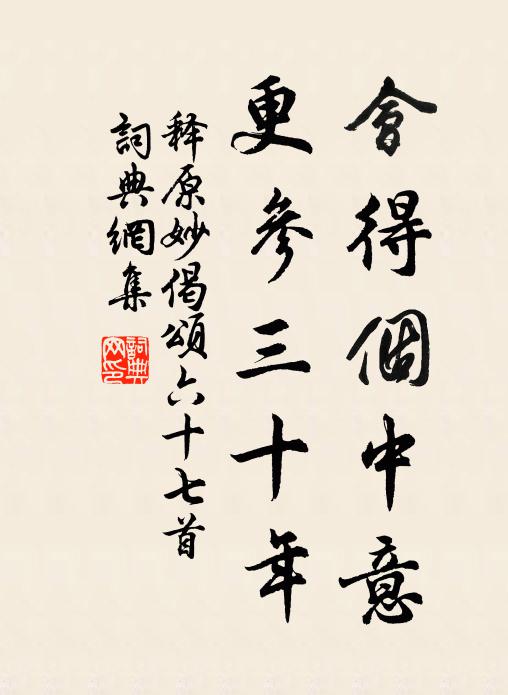 會得個中意
更參三十年
释原妙偈頌六十七首
詞典網集
詞典网印